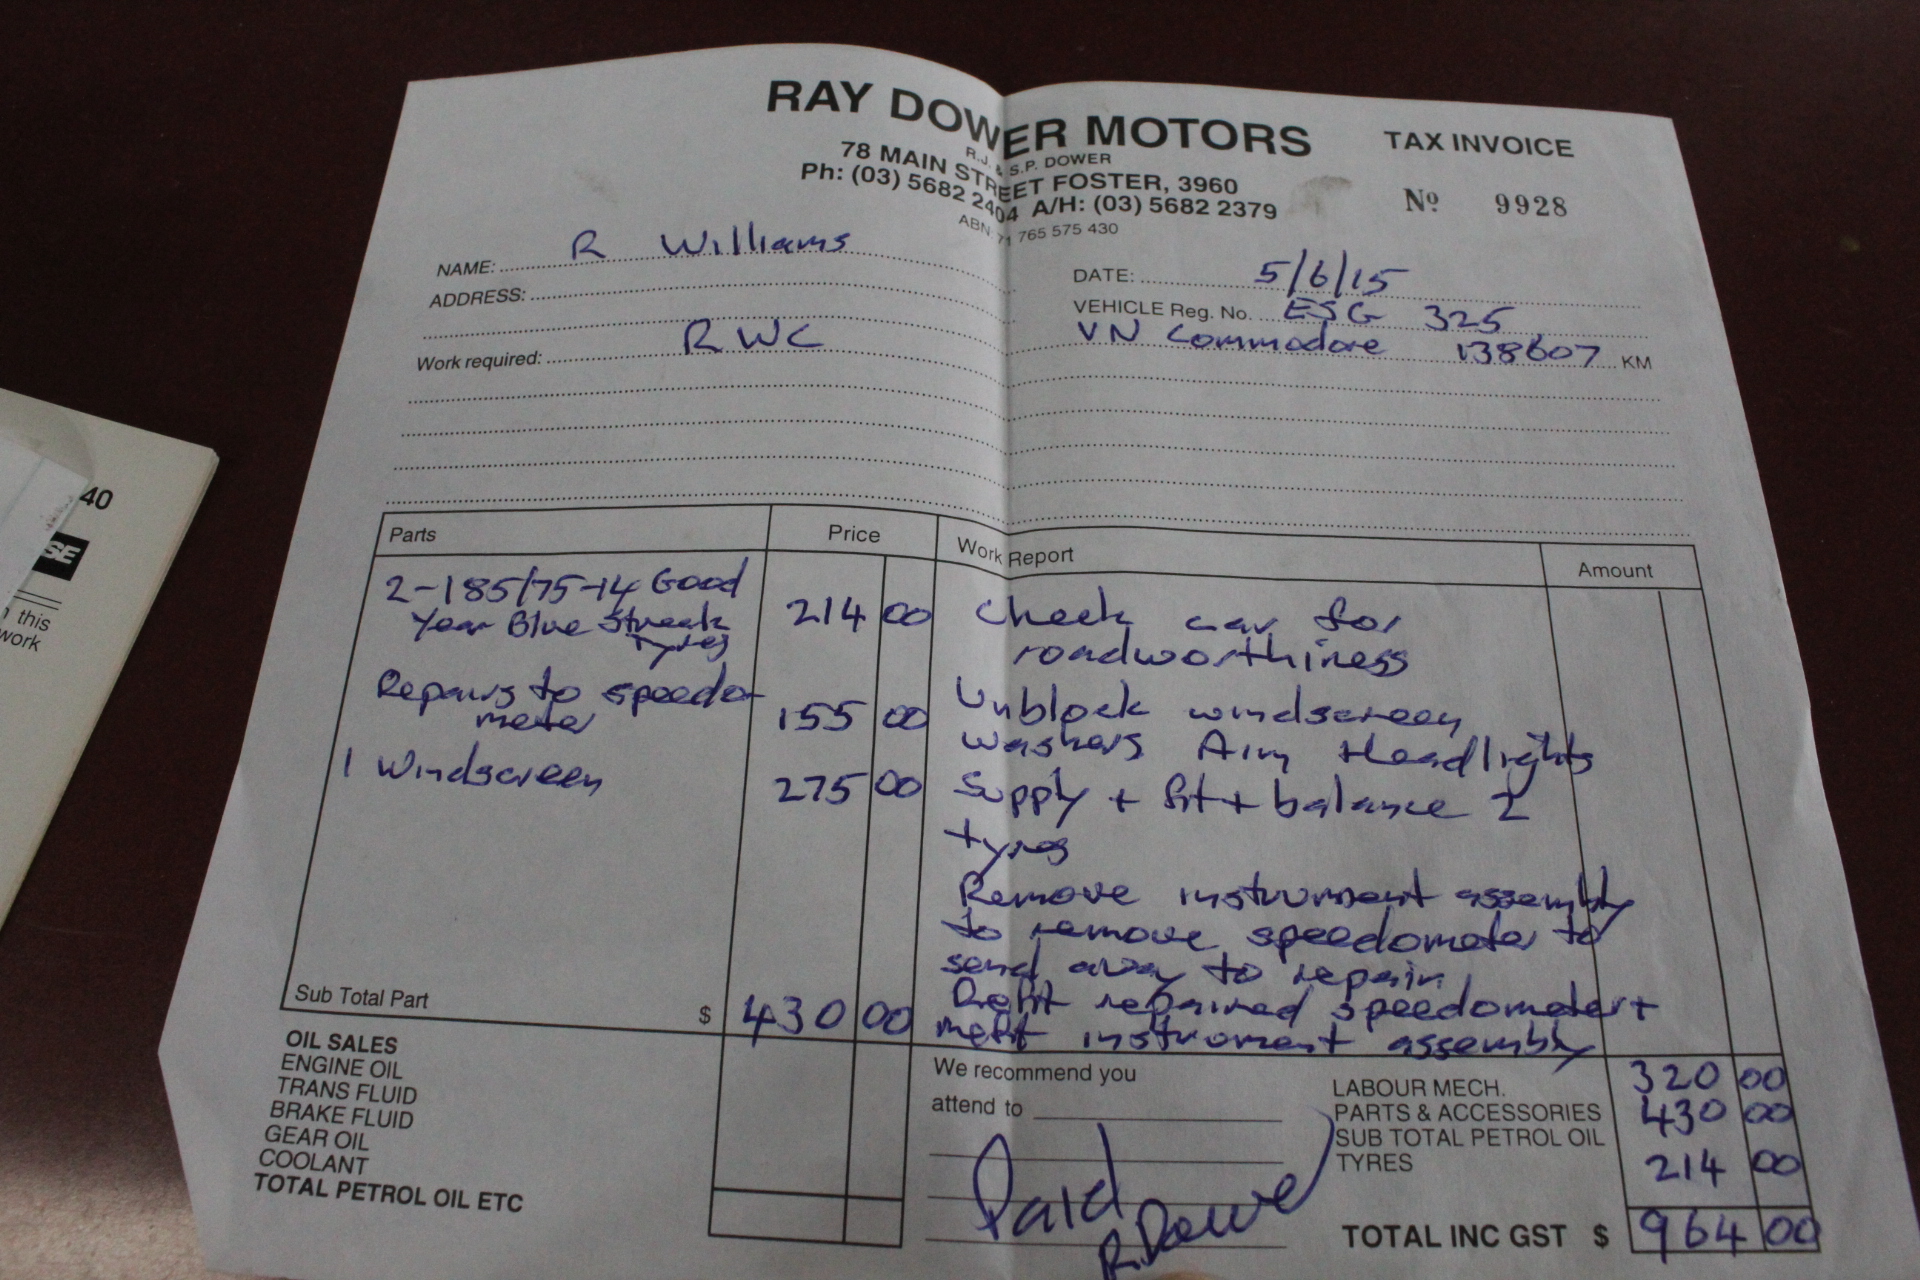 RAY DOWER MOTORS
TAX INVOICE
R.J. & S.P. DOWER
78 MAIN STREET FOSTER, 3960
Ph: (03) 5682 2404 A/H: (03) 5682 2379
No 9928
ABN 71 765 575 430
NAME: R Williams
DATE: 5/6/15
ADDRESS:
VEHICLE Reg. No. ESG 325
VN Commodore 138607 KM
Work required: RWC
Parts Price Work Report Amount
2-185/75-14 Good
Year Blue Streak
Tyres 214 00
Repairs to speedo
meter 155 00
1 Windscreen 275 00
Check car for
roadworthiness
Unblock windscreen
washers Aim Headlights
Supply + fit + balance 2
tyres
Remove instrument assembly
to remove speedometer to
send away to repair
Refit repaired speedometer +
refit instrument assembly
Sub Total Part $ 430 00
OIL SALES
ENGINE OIL
TRANS FLUID
BRAKE FLUID
GEAR OIL
COOLANT
TOTAL PETROL OIL ETC
We recommend you
attend to
Paid
R Dower
LABOUR MECH. 320 00
PARTS & ACCESSORIES 430 00
SUB TOTAL PETROL OIL
TYRES 214 00
TOTAL INC GST $ 964 00
40
SE
this
work